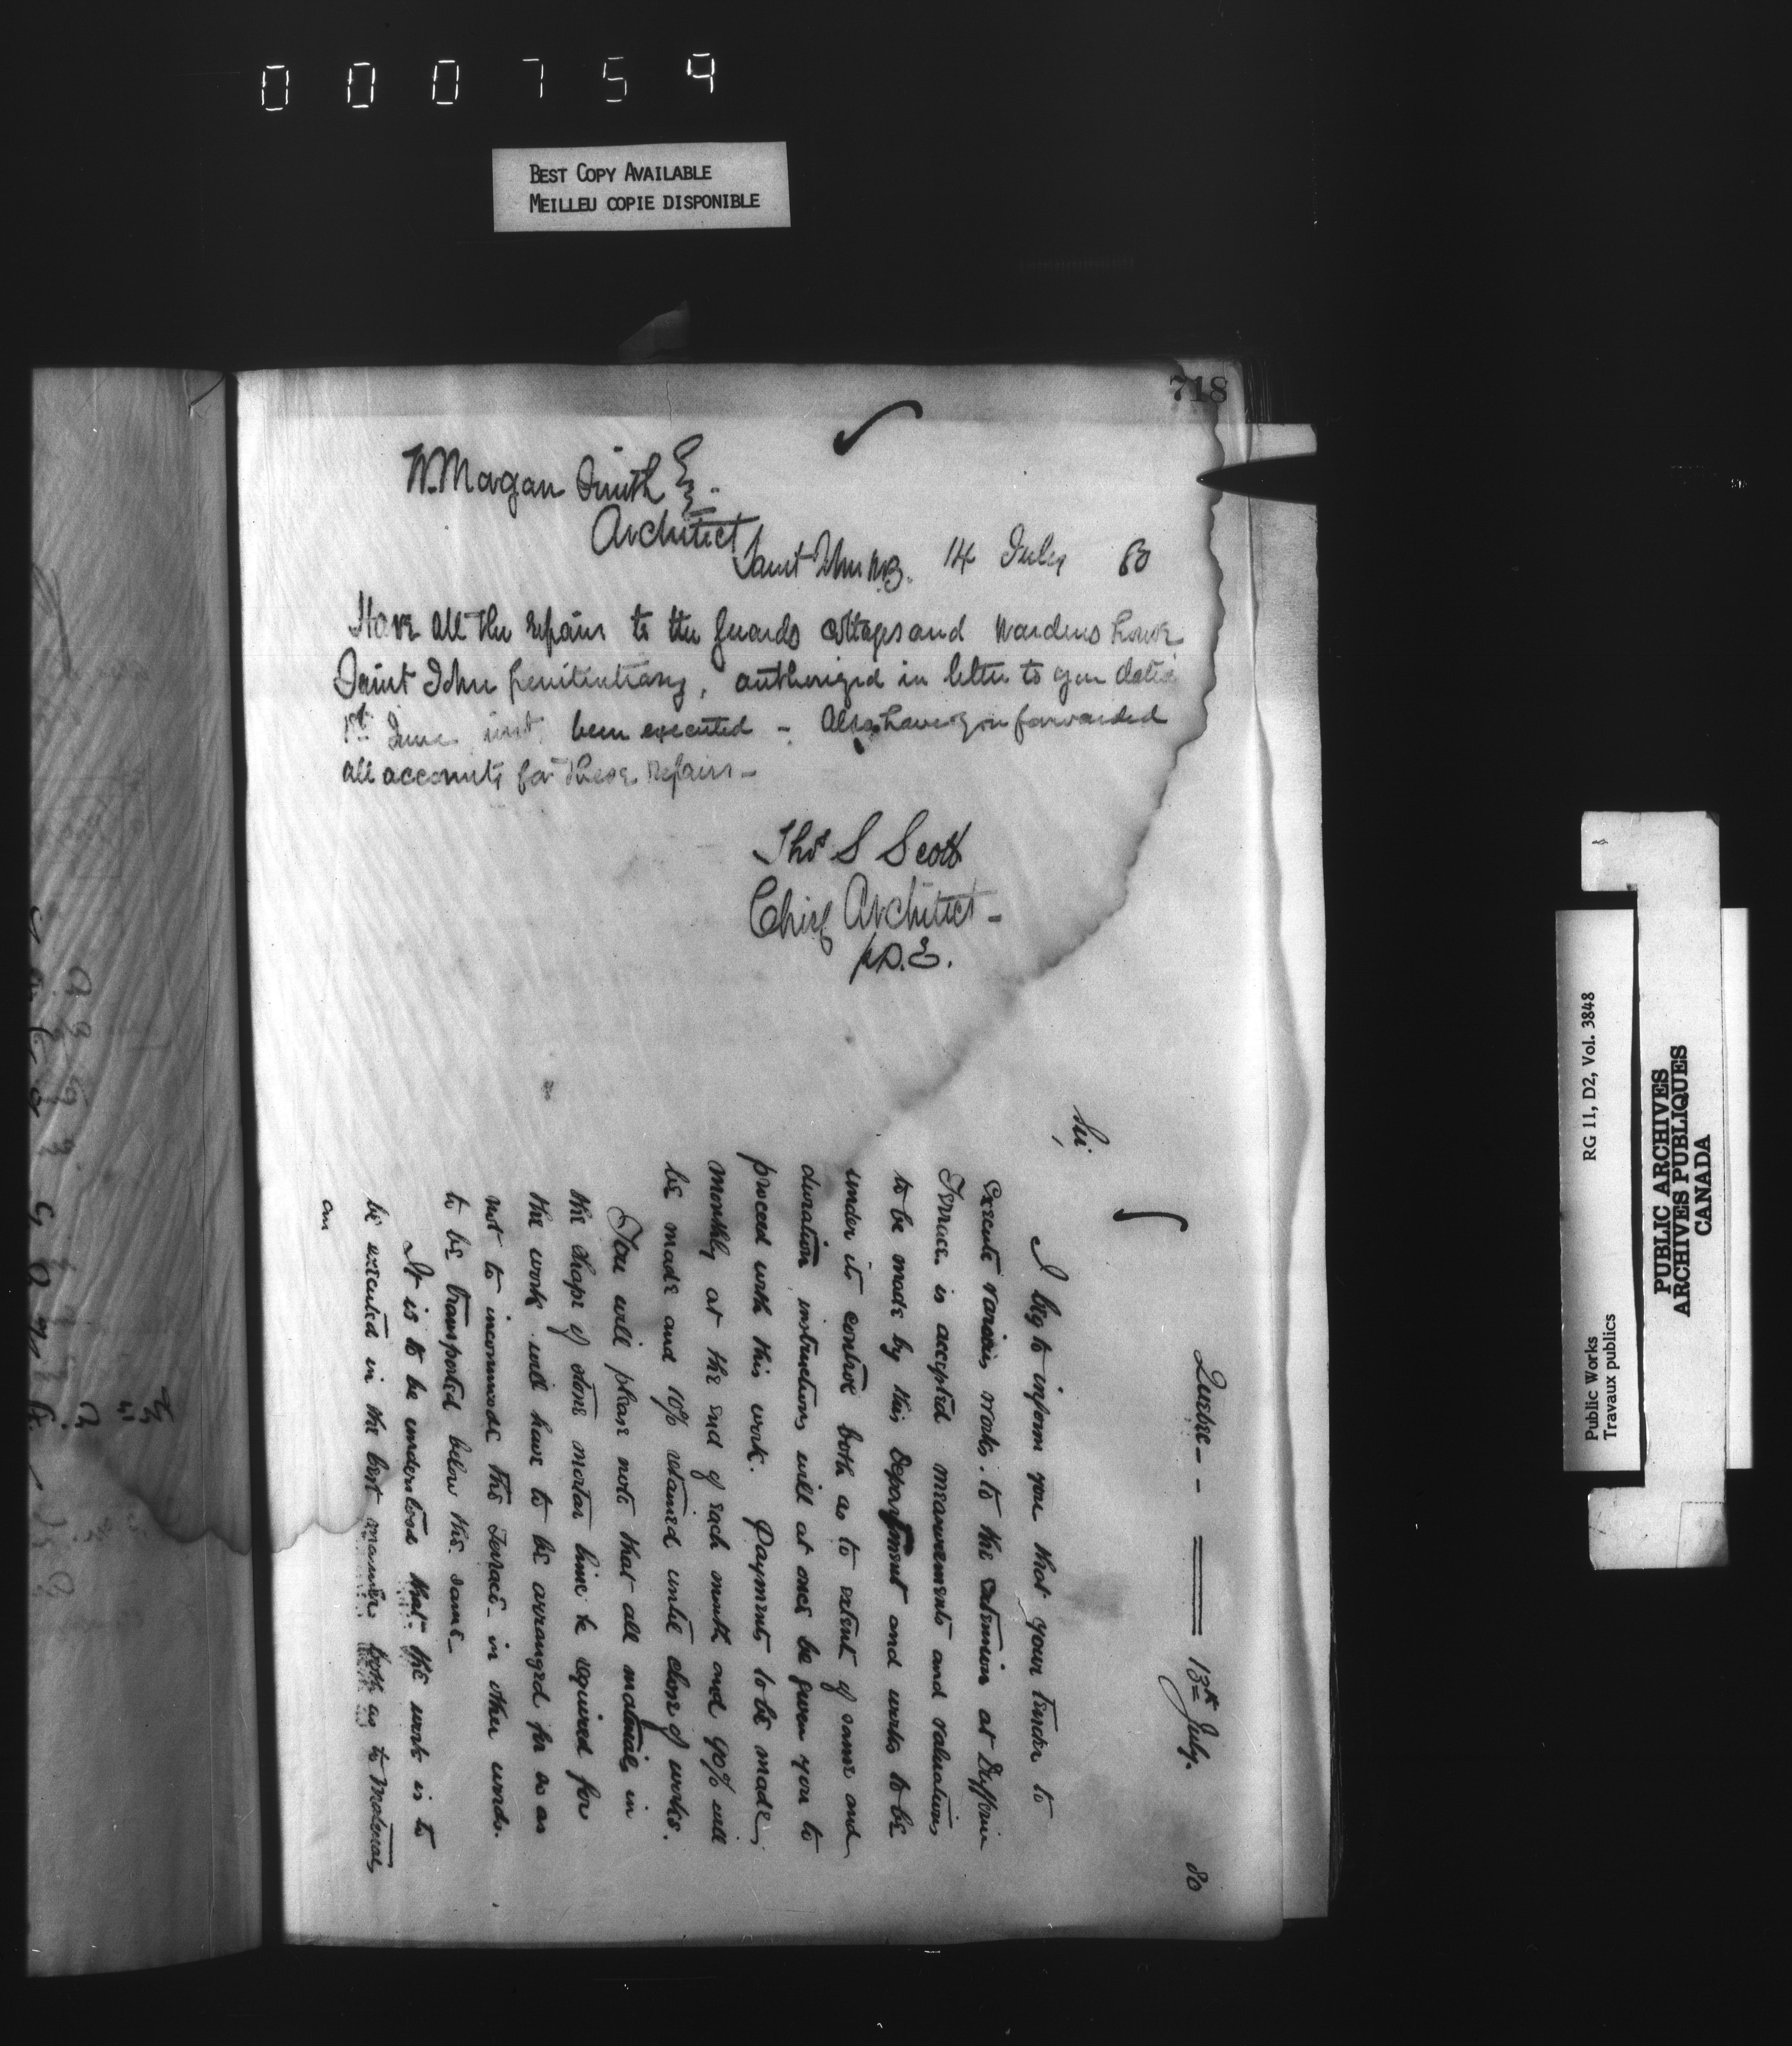 000754
BEST COPY AVAILABLE
MEILLEU COPIE DISPONIBLE
718
W. Magan Smith Esq.
Architect
Saint John NB. 14 July 80
Have all the repairs to the guards cottages and wardens house
Saint John penitentiary, authorized in letter to you dated
1st June inst, been executed - Also have you forwarded
all accounts for these repairs -
Thos S Scott
Chief Architect -
p D.E.
Quebec - - 13th July. 80
Sir,
I beg to inform you that your tender to
execute various works to the extension at Dufferin
Terrace is accepted measurements and valuations
to be made by this Department and works to be
under its control both as to extent of same and
duration instructions will at once be given you to
proceed with this work. Payments to be made
monthly at the end of each month and 90% will
be made and 10% retained until close of works.
You will please note that all materials in
the shape of stone mortar lime &c required for
the work will have to be arranged for so as
not to incommode the Terrace in other words.
to be transported below the same -
It is to be understood that the work is to
be executed in the best manner both as to materials
RG 11, D2, Vol. 3848
Public Works
Travaux publics
PUBLIC ARCHIVES
ARCHIVES PUBLIQUES
CANADA